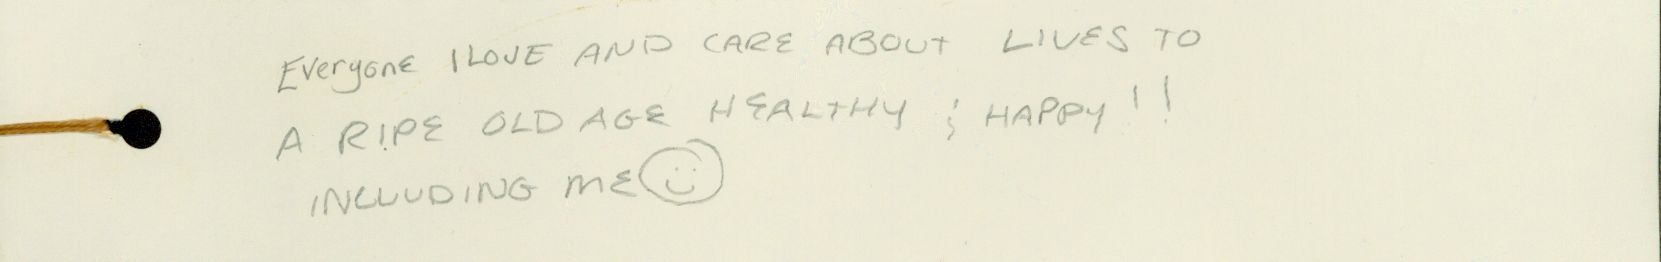 Everyone I LOVE AND CARE ABOUT LIVES TO
A RIPE OLD AGE HEALTHY & HAPPY!!
INCLUDING ME